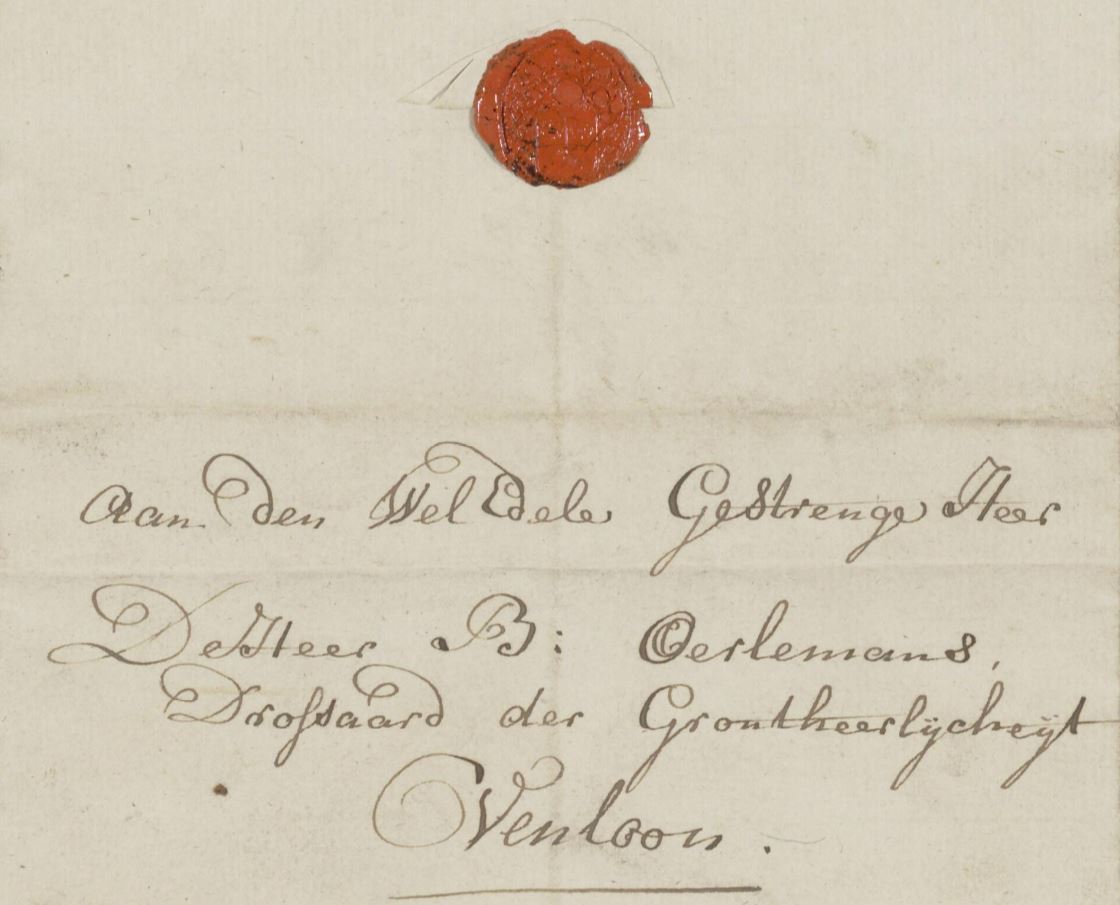 Aan den Wel Edele Gestrenge Heer
De Heer B: Oerlemans,
Drossaard der Grontheerlijcheijt
Venloon.